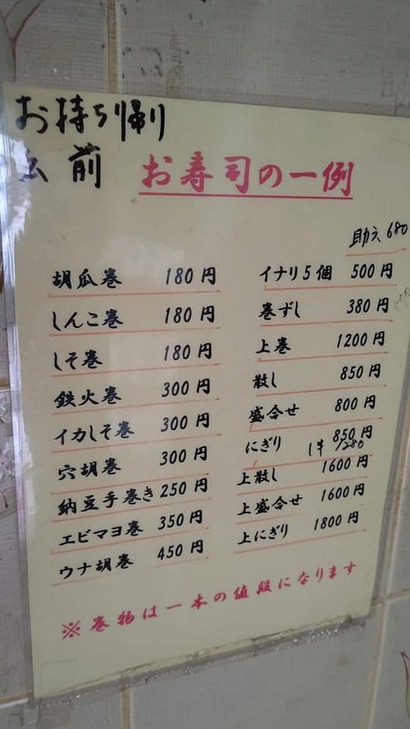 お持ち帰り
出前
お寿司の一例
胡瓜巻 180円
しんこ巻 180円
しそ巻 180円
鉄火巻 300円
イカしそ巻 300円
穴胡巻 300円
納豆手巻き 250円
エビマヨ巻 350円
ウナ胡巻 450円
助六 680
イナリ5個 500円
巻ずし 380円
上巻 1200円
散し 850円
盛合せ 800円
にぎり 850円
1280
上散し 1600円
上盛合せ 1600円
上にぎり 1800円
※巻物は一本の値段になります